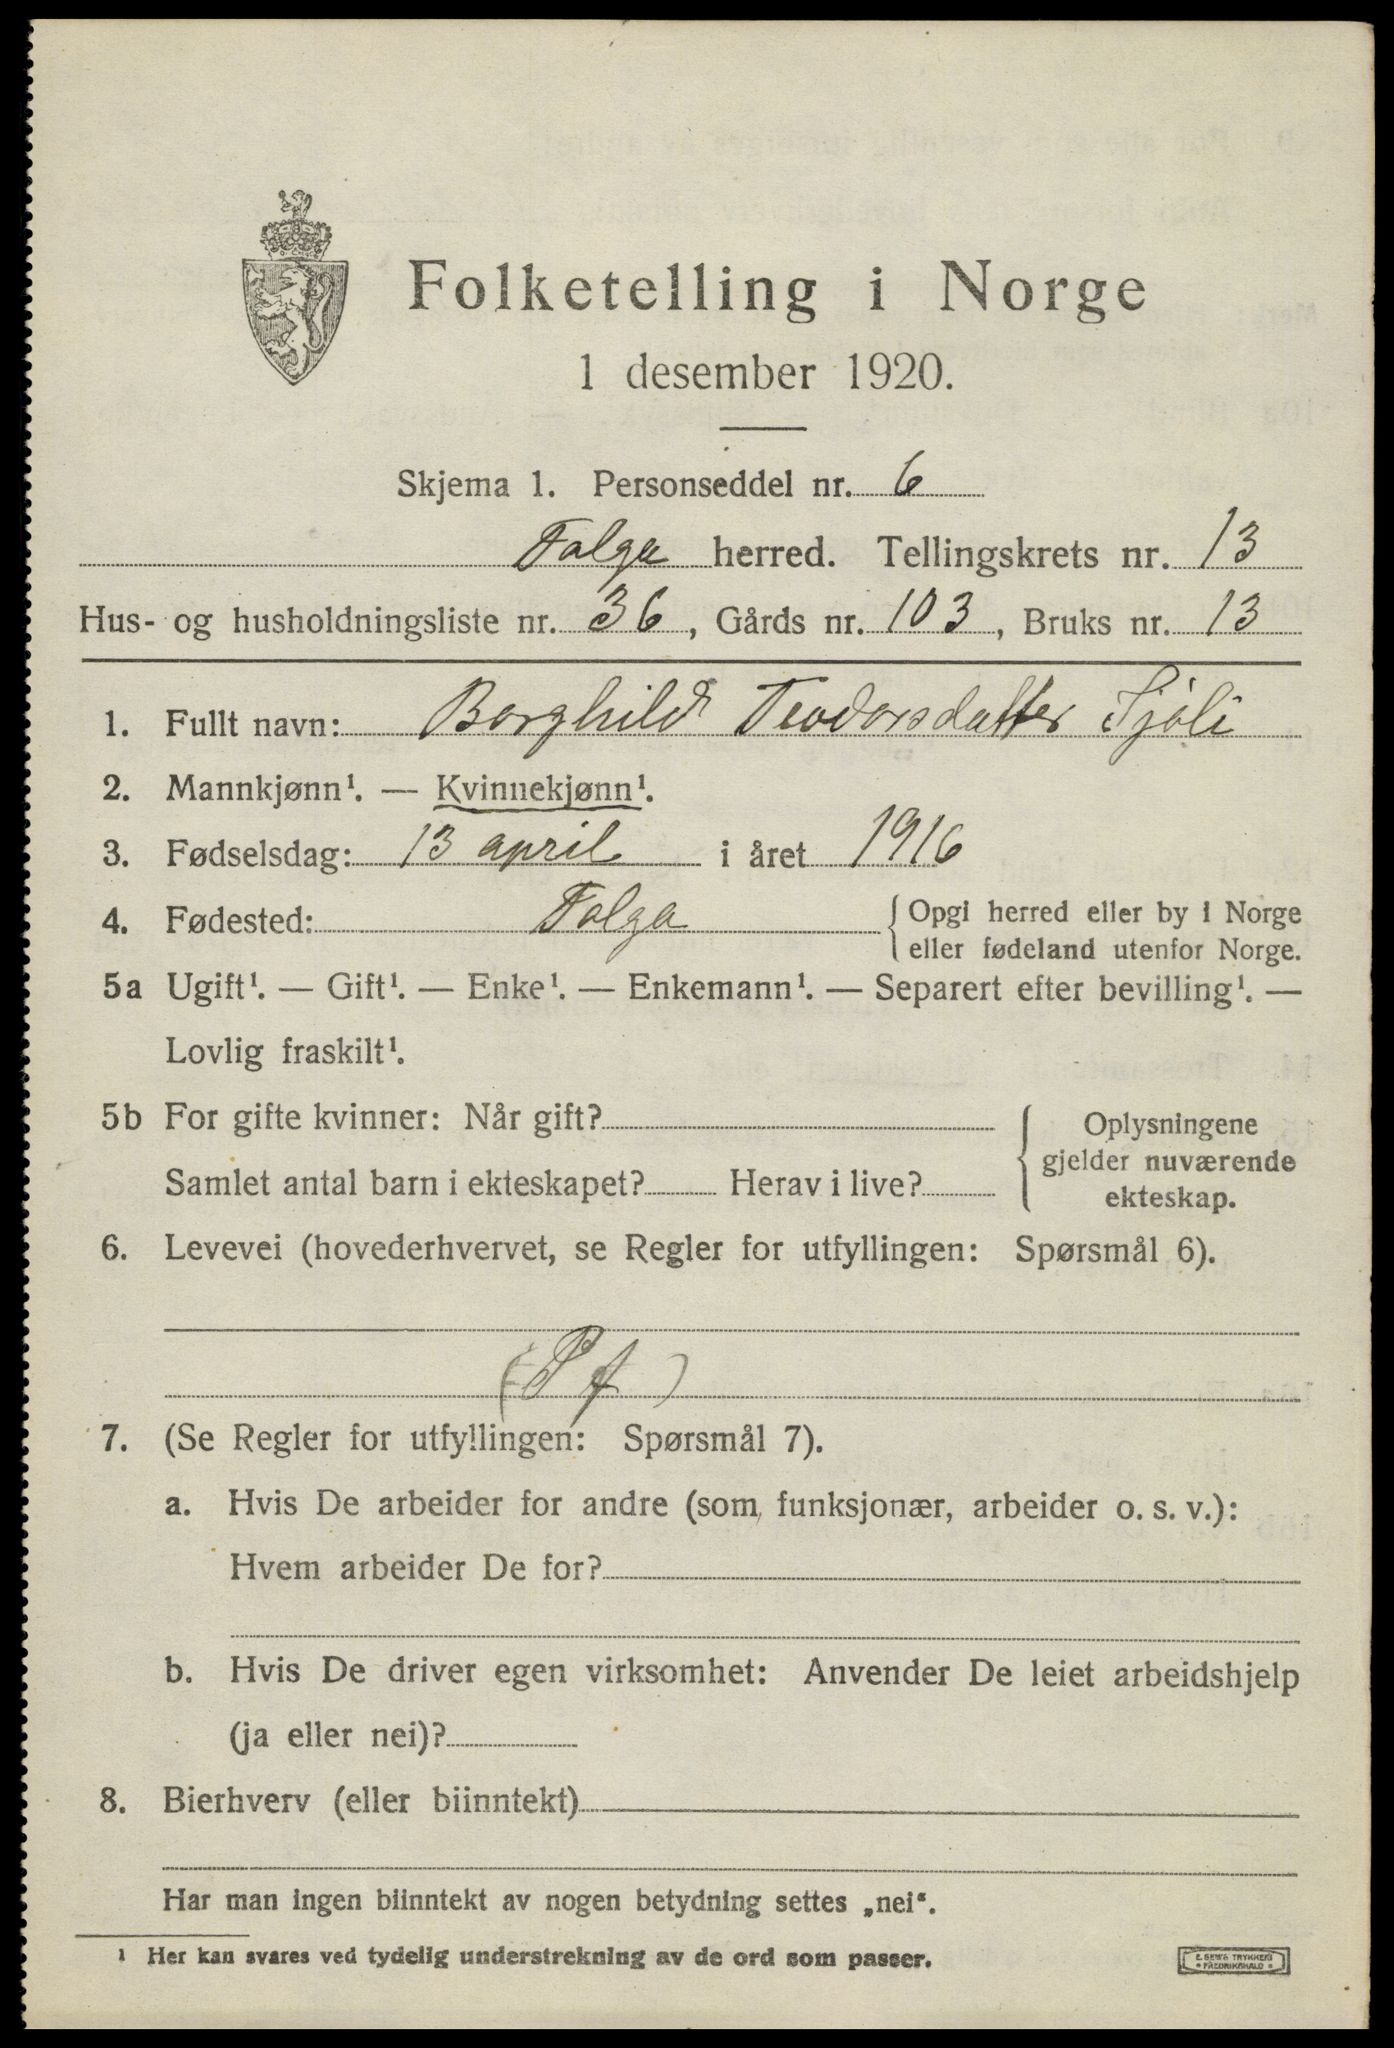 Folketelling i Norge
1 desember 1920.
Skjema 1. Personseddel nr. 6
Tolga herred. Tellingskrets nr. 13
Hus- og husholdningsliste nr. 36, Gårds nr. 103, Bruks nr. 13
1. Fullt navn: Borghild Teodorsdatter Sjøli
2. Mannkjønn¹. — Kvinnekjønn¹.
3. Fødselsdag: 13 april i året 1916
4. Fødested: Tolga { Opgi herred eller by i Norge
eller fødeland utenfor Norge.
5a Ugift¹. — Gift¹. — Enke¹. — Enkemann¹. — Separert efter bevilling¹. —
Lovlig fraskilt¹.
5b For gifte kvinner: Når gift? { Oplysningene
gjelder nuværende
Samlet antal barn i ekteskapet? Herav i live?
ekteskap.
6. Levevei (hovederhvervet, se Regler for utfyllingen: Spørsmål 6).
(P f)
7. (Se Regler for utfyllingen: Spørsmål 7).
a. Hvis De arbeider for andre (som funksjonær, arbeider o. s. v.):
Hvem arbeider De for?
b. Hvis De driver egen virksomhet: Anvender De leiet arbeidshjelp
(ja eller nei)?
8. Bierhverv (eller biinntekt)
Har man ingen biinntekt av nogen betydning settes „nei“.
¹ Her kan svares ved tydelig understrekning av de ord som passer.
E. SEMS TRYKKERI
• FREDRIKSHALD •